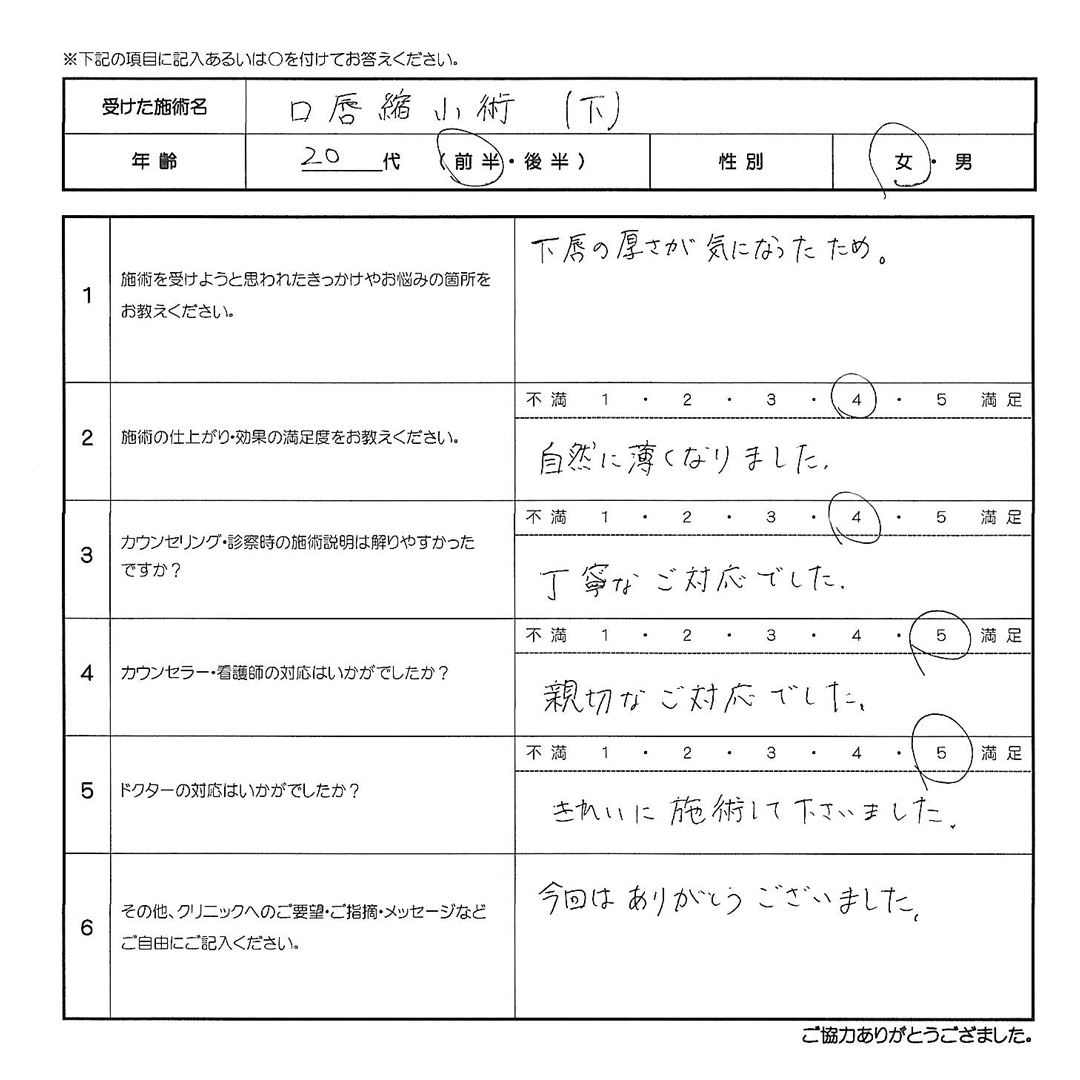 ※下記の項目に記入あるいは〇を付けてお答えください。
受けた施術名 口唇縮小術 (下)
年齢 20代 (前半・後半) 性別 女・男
1 施術を受けようと思われたきっかけやお悩みの箇所を
お教えください。
下唇の厚さが気になったため。
2 施術の仕上がり・効果の満足度をお教えください。
不満 1 ・ 2 ・ 3 ・ 4 ・ 5 満足
自然に薄くなりました.
3 カウンセリング・診察時の施術説明は解りやすかった
ですか?
不満 1 ・ 2 ・ 3 ・ 4 ・ 5 満足
丁寧なご対応でした.
4 カウンセラー・看護師の対応はいかがでしたか?
不満 1 ・ 2 ・ 3 ・ 4 ・ 5 満足
親切なご対応でした。
5 ドクターの対応はいかがでしたか?
不満 1 ・ 2 ・ 3 ・ 4 ・ 5 満足
きれいに施術して下さいました。
6 その他、クリニックへのご要望・ご指摘・メッセージなど
ご自由にご記入ください。
今回はありがとうございました。
ご協力ありがとうござました。